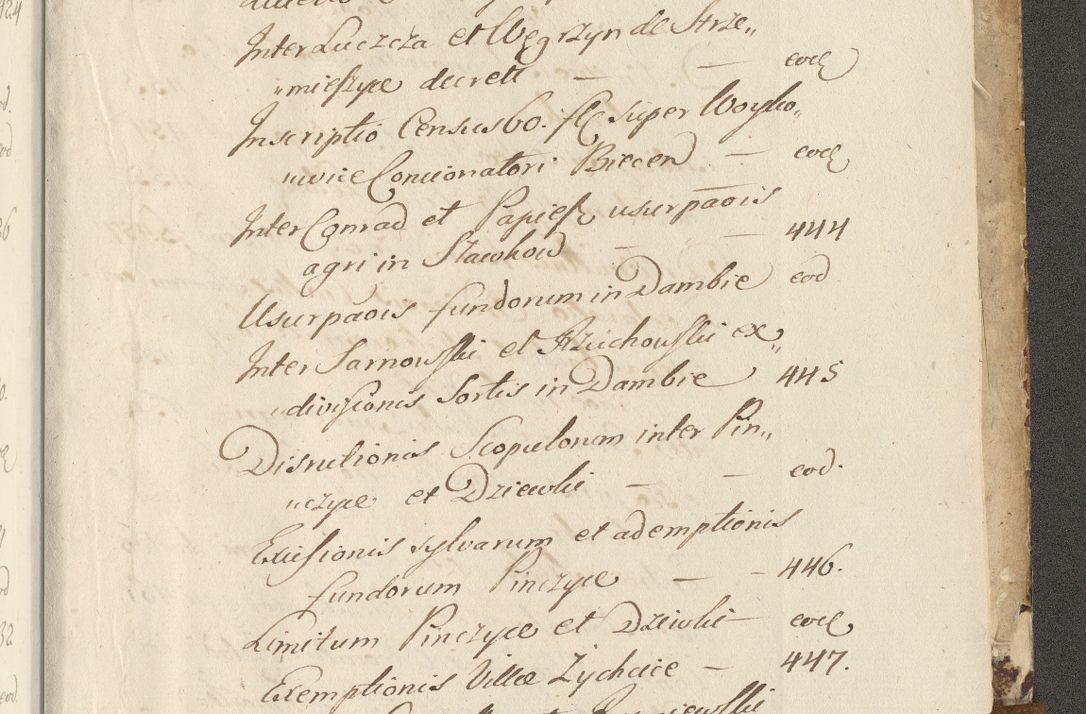 Inter Luczcza et Węgrzyn de Strze„
„mieszyce decrett — — eod
Inscriptio Census 60. fl super Woyko„
„wice Concionatori Biecen — eod
Inter Conrad et Papiesz usurpaõis
agri in Sławkow — — 444
Usurpaõis fundorum in Dambie eod
Inter Sarnowski et Strzichowski ex„
„divisionis Sortis in Dambie 445
Disruitionis Scopulorum inter Pin„
„czyce et Dziewki — — eod.
Excisionis sylvarum et ademptionis
fundorum Pinczyce — — 446.
Limitum Pinczyce et Dziewki — eod
Exemptionis Villæ Zychcice — 447.